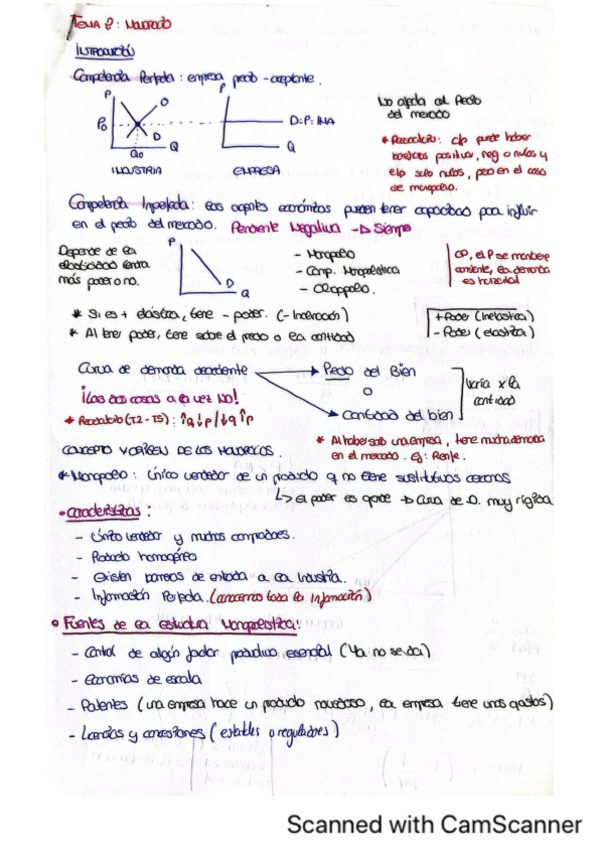 TEMA 8: MONOPOLIO
INTRODUCCIÓN
Competencia Perfecta: empresa precio-aceptante.
P
O
P₀
D
Q₀
Q
INDUSTRIA
P
D=P=IMA
Q
EMPRESA
No afecta al Precio
del mercado
* Recordatorio: c/p puede haber
beneficios positivos, neg o nulos y
e/p solo nulos, pero en el caso
de monopolio.
Competencia Imperfecta: Los agentes económicos pueden tener capacidad para influir
en el precio del mercado. Pendiente Negativa → Siempre
Depende de la
elasticidad tendrá
más poder o no.
P
D
Q
- Monopolio
- Comp. Monopolística
- Oligopolio.
CP, el P se mantiene
constante, la demanda
es horizontal
* Si es + elástica, tiene - poder. (- Inclinación)
* Al tener poder, tiene sobre el precio o la cantidad
+ Poder (inelástica)
- Poder (elástica)
Curva de demanda decreciente
Precio del Bien
o
Cantidad del bien
Varía x la
cantidad
¡Las dos cosas a la vez NO!
* Recordatorio (T2-T5): ↑q ↓p / ↓q ↑p
CONCEPTO Y ORIGEN DE LOS MONOPOLIOS.
* Al haber solo una empresa, tiene mucha demanda
en el mercado. Ej: Renfe.
* Monopolio: Único vendedor de un producto q no tiene sustitutivos cercanos
↳ el poder es grande → Curva de D. muy rígida
• Características:
- Único vendedor y muchos compradores.
- Producto homogéneo
- Existen barreras de entrada a la Industria.
- Información Perfecta. (conocemos toda la información)
• Fuentes de la estructura Monopolística:
- Control de algún factor productivo esencial (Ya no se da)
- Economías de escala
- Patentes (una empresa hace un producto novedoso, la empresa tiene unos gastos)
- Licencias y concesiones (estables o reguladores)
Scanned with CamScanner